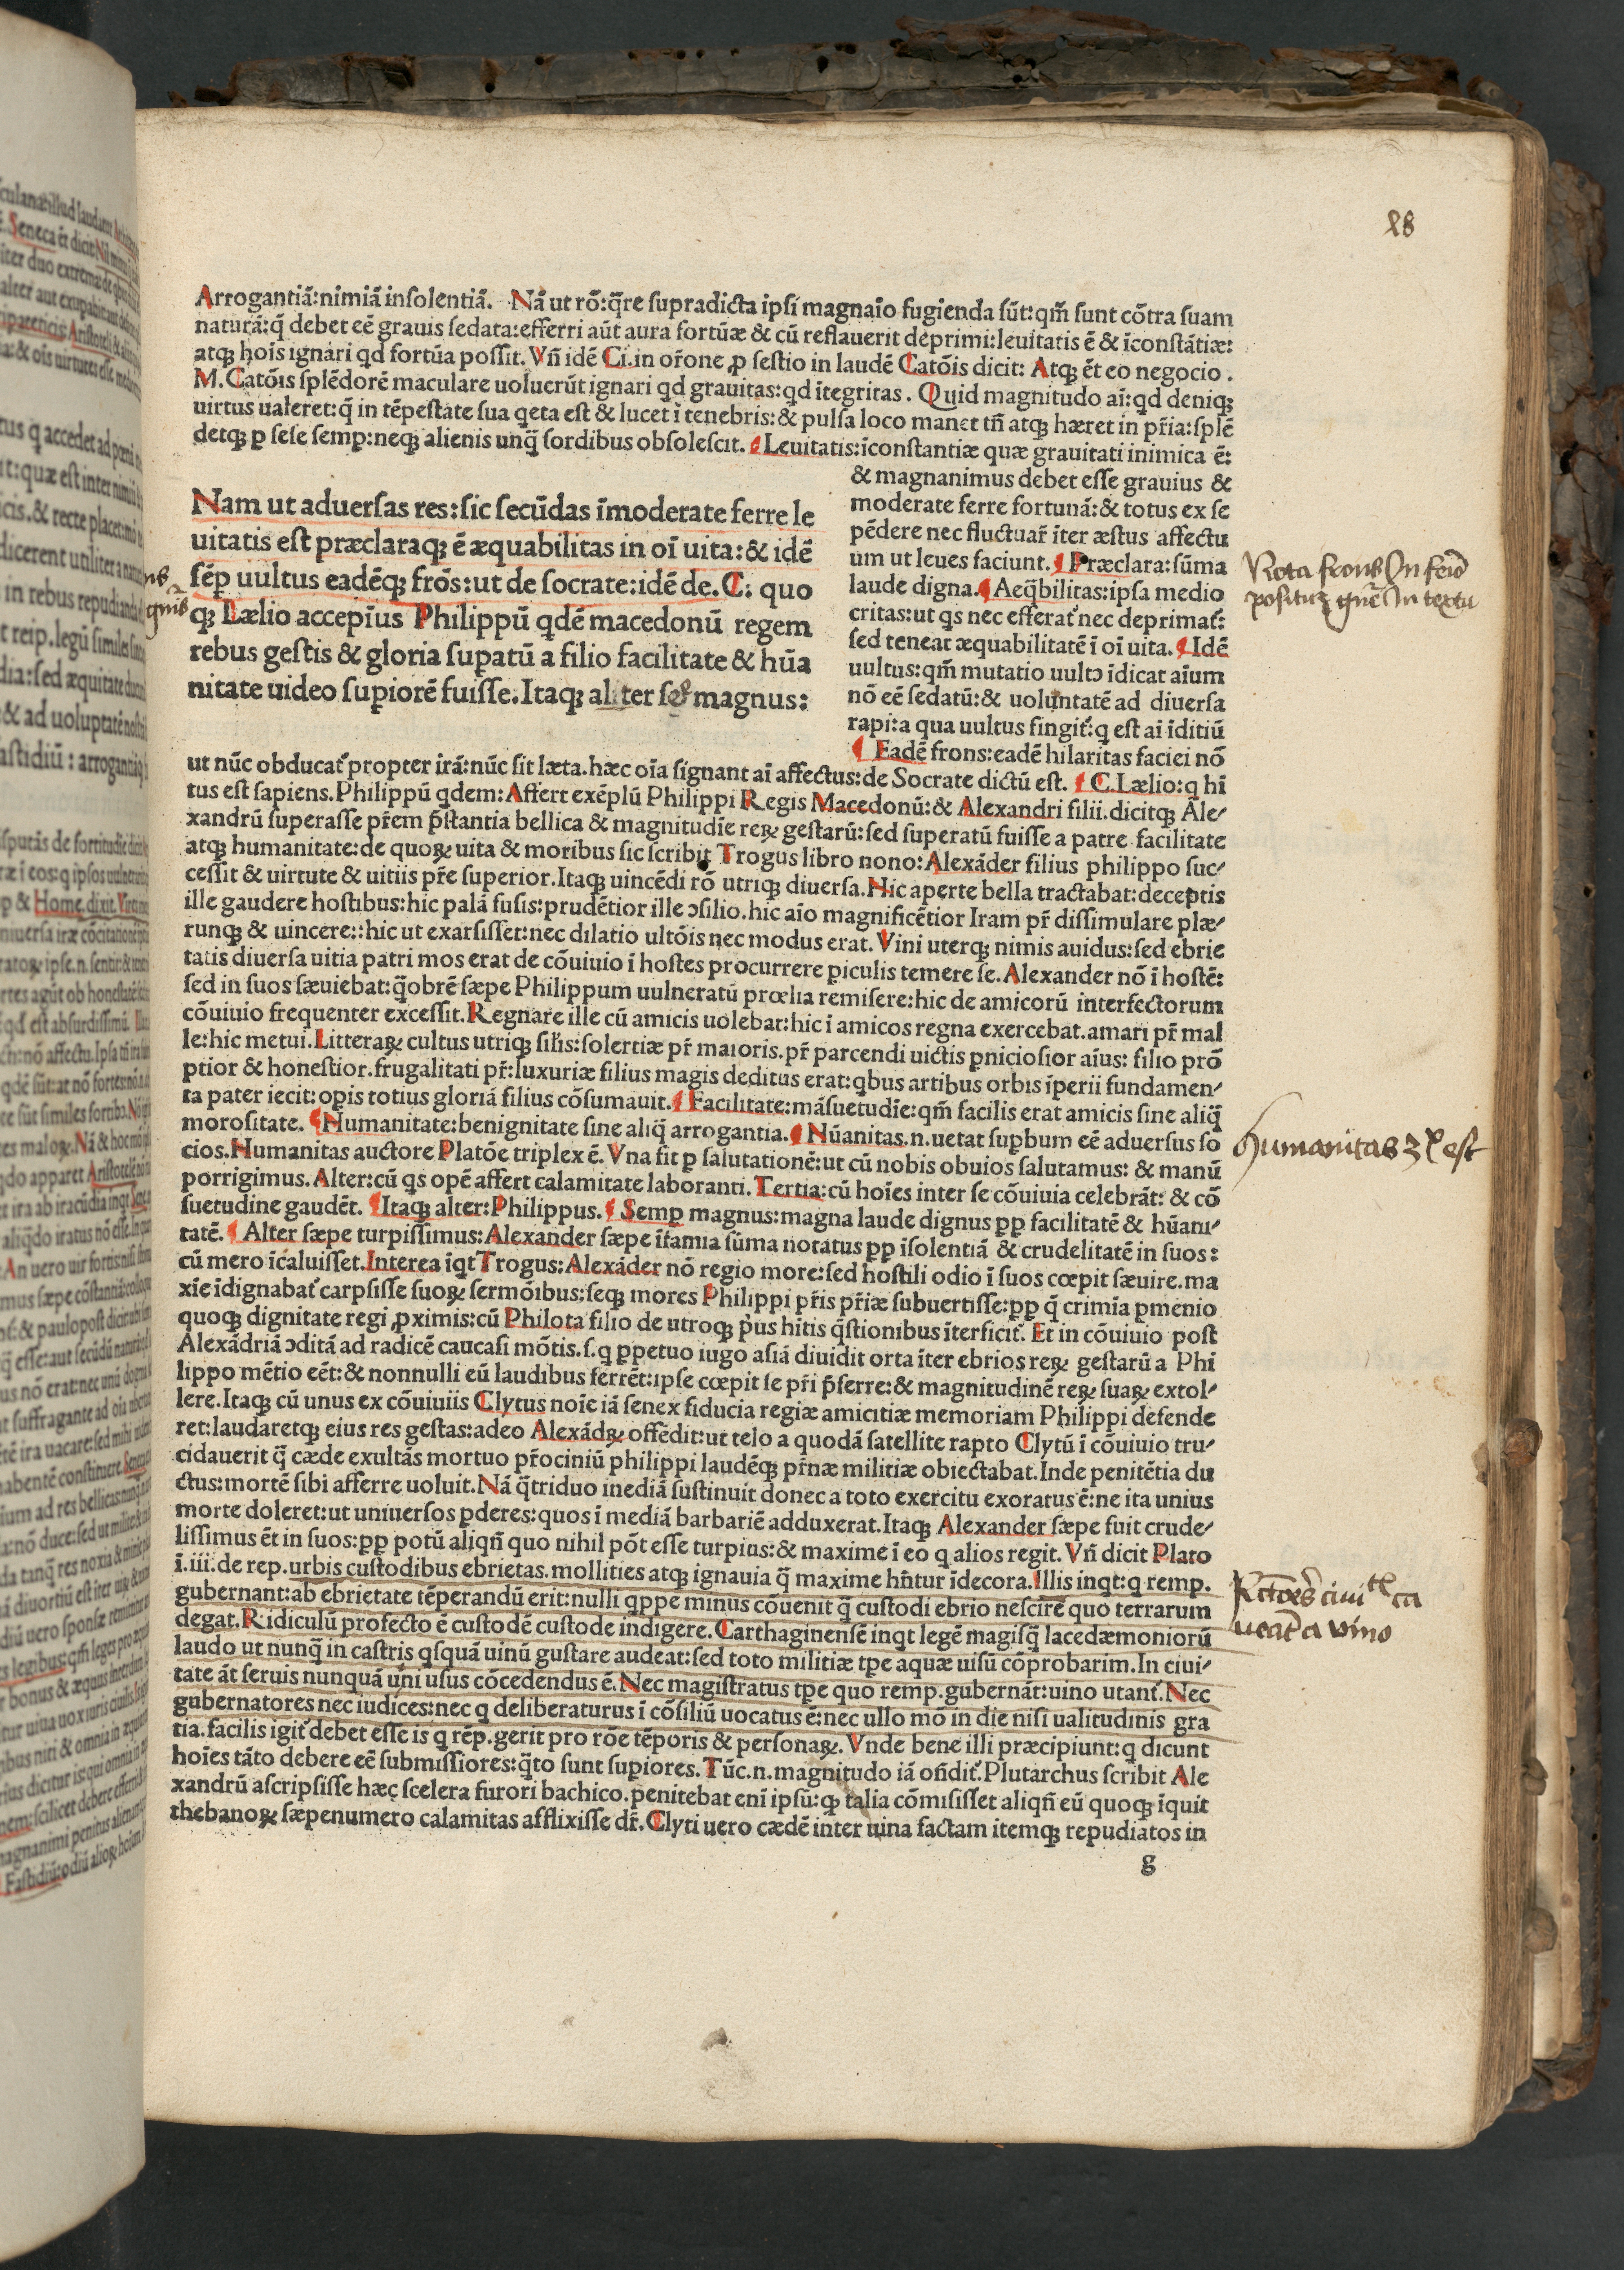 l8
Arrogantiā:nimiā inſolentiā. Nā ut rō:q̄re ſupradicta ipſi magnaīo fugienda ſūt:qm̄ ſunt cōtra ſuam
naturā:q̄ debet eē grauis ſedata:efferri aūt aura fortūæ & cū reflauerit deprimi:leuitatis ē & īconſtātiæ:
atqꝫ hoīs ignari qd fortūa poſſit. Vn̄ idē Ci.in or̄one ꝓ ſeſtio in laudē Catōis dicit: Atqꝫ ēt eo negocio.
M.Catōis ſplēdorē maculare uoluerūt ignari qd grauitas:qd ītegritas. Quid magnitudo aī:qd deniqꝫ
uirtus ualeret:q̄ in tēpeſtate ſua qeta eſt & lucet ī tenebris:& pulſa loco manet tn̄ atqꝫ hæret in pr̄ia:ſplē
detqꝫ ꝑ ſeſe ſemꝑ:neqꝫ alienis unq̄ ſordibus obſoleſcit. ¶Leuitatis:īconſtantiæ quæ grauitati inimica ē:
& magnanimus debet eſſe grauius &
moderate ferre fortunā:& totus ex ſe
pēdere nec fluctuar̄ īter æſtus affectu
um ut leues faciunt. ¶Præclara:ſūma
laude digna. ¶Aeq̄bilitas:ipſa medio
critas:ut qs nec efferat᷑ nec deprimat᷑:
ſed teneat æquabilitatē ī oī uita. ¶Idē
uultus:qm̄ mutatio uultꝰ īdicat aīum
nō eē ſedatū:& uoluntatē ad diuerſa
rapi:a qua uultus fingit᷑:q eſt aī īditiū
¶Eadē frons:eadē hilaritas faciei nō
Nam ut aduerſas res:ſic ſecūdas īmoderate ferre le
uitatis eſt præclaraqꝫ ē æquabilitas in oī uita:& idē
ſēꝑ uultus eadēqꝫ frōs:ut de ſocrate:idē de.C: quo
qꝫ Lælio accepīus Philippū qdē macedonū regem
rebus geſtis & gloria ſuꝑatū a filio facilitate & hūa
nitate uideo ſuꝑiorē fuiſſe.Itaqꝫ aliter ſēꝑ magnus:
ut nūc obducat᷑ propter irā:nūc ſit læta.hæc oīa ſignant aī affectus:de Socrate dictū eſt. ¶C.Lælio:q hī
tus eſt ſapiens.Philippū qdem:Affert exēplū Philippi Regis Macedonū:& Alexandri filii.dicitqꝫ Ale⸗
xandrū ſuperaſſe pr̄em p̄ſtantia bellica & magnitudīe reꝝ geſtarū:ſed ſuperatū fuiſſe a patre facilitate
atqꝫ humanitate:de quoꝝ uita & moribus ſic ſcribit Trogus libro nono:Alexāder filius philippo ſuc⸗
ceſſit & uirtute & uitiis pr̄e ſuperior.Itaqꝫ uincēdi rō utriqꝫ diuerſa.Hic aperte bella tractabat:deceptis
ille gaudere hoſtibus:hic palā fuſis:prudētior ille ↄſilio.hic aīo magnificētior Iram pr̄ diſſimulare plæ⸗
runqꝫ & uincere::hic ut exarſiſſet:nec dilatio ultōis nec modus erat.Vini uterqꝫ nimis auidus:ſed ebrie
tatis diuerſa uitia patri mos erat de cōuiuio ī hoſtes procurrere ꝑiculis temere ſe.Alexander nō ī hoſtē:
ſed in ſuos ſæuiebat:q̄obrē ſæpe Philippum uulneratū prœlia remiſere:hic de amicorū interfectorum
cōuiuio frequenter exceſſit.Regnare ille cū amicis uolebat:hic ī amicos regna exercebat.amari pr̄ mal
le:hic metui.Litteraꝝ cultus utriqꝫ ſil̄is:ſolertiæ pr̄ maioris.pr̄ parcendi uictis ꝑniciofior aīus: filio prō
ptior & honeſtior.frugalitati pr̄:luxuriæ filius magis deditus erat:qbus artibus orbis īperii fundamen⸗
ta pater iecit:opis totius gloriā filius cōſumauit. ¶Facilitate:māſuetudīe:qm̄ facilis erat amicis ſine aliq̄
moroſitate. ¶Humanitate:benignitate ſine aliq̄ arrogantia. ¶Hūanitas.n.uetat ſuꝑbum eē aduerſus ſo
cios.Humanitas auctore Platōe triplex ē. Vna fit ꝑ ſalutationē:ut cū nobis obuios ſalutamus: & manū
porrigimus. Alter:cū qs opē affert calamitate laboranti.Tertia:cū hoīes inter ſe cōuiuia celebrāt: & cō
ſuetudine gaudēt. ¶Itaqꝫ alter:Philippus. ¶Semꝑ magnus:magna laude dignus ꝑꝑ facilitatē & hūani⸗
tatē. ¶Alter ſæpe turpiſſimus:Alexander ſæpe īfamia ſūma notatus ꝑꝑ īſolentiā & crudelitatē in ſuos:
cū mero īcaluiſſet.Interea īqt Trogus:Alexāder nō regio more:ſed hoſtili odio ī ſuos cœpit ſæuire.ma
xīe īdignabat᷑ carpſiſſe ſuoꝝ ſermōibus:ſeqꝫ mores Philippi pr̄is pr̄iæ ſubuertiſſe:ꝑꝑ q̄ crimīa ꝑmenio
quoqꝫ dignitate regi ꝓximis:cū Philota filio de utroqꝫ p̄us hītis q̄ſtionibus īterficit᷑. Et in cōuiuio poſt
Alexādriā ↄditā ad radicē caucaſi mōtis.ſ.q ꝑpetuo iugo aſiā diuidit orta īter ebrios reꝝ geſtarū a Phi
lippo mētio eēt:& nonnulli eū laudibus ferrēt:ipſe cœpit ſe pr̄i p̄ferre:& magnitudinē reꝝ ſuaꝝ extol⸗
lere.Itaqꝫ cū unus ex cōuiuiis Clytus noīe iā ſenex fiducia regiæ amicitiæ memoriam Philippi defende
ret:laudaretqꝫ eius res geſtas:adeo Alexādꝝ offēdit:ut telo a quodā ſatellite rapto Clytū ī cōuiuio tru⸗
cidauerit q̄ cæde exultās mortuo pr̄ociniū philippi laudēqꝫ pr̄næ militiæ obiectabat.Inde penitētia du
ctus:mortē ſibi afferre uoluit.Nā q̄triduo inediā ſuſtinuit donec a toto exercitu exoratus ē:ne ita unius
morte doleret:ut uniuerſos ꝑderes:quos ī mediā barbariē adduxerat.Itaqꝫ Alexander ſæpe fuit crude⸗
liſſimus ēt in ſuos:ꝑꝑ potū aliqn̄ quo nihil pōt eſſe turpius:& maxime ī eo q alios regit. Vn̄ dicit Plato
ī.iii.de rep.urbis cuſtodibus ebrietas.mollities atqꝫ ignauia q̄ maxime hn̄tur īdecora.Illis inqt:q remp.
gubernant:ab ebrietate tēperandū erit:nulli qppe minus cōuenit q̄ cuſtodi ebrio neſcire quo terrarum
degat.Ridiculū profecto ē cuſtodē cuſtode indigere.Carthaginenſē inqt legē magiſq̄ lacedæmoniorū
laudo ut nunq̄ in caſtris qſquā uinū guſtare audeat:ſed toto militiæ tꝑe aquæ uiſū cōprobarim.In ciui⸗
tate āt ſeruis nunquā uīni uſus cōcedendus ē.Nec magiſtratus tꝑe quo remp.gubernāt:uino utant᷑.Nec
gubernatores nec iudices:nec q deliberaturus ī cōſiliū uocatus ē:nec ullo mō in die niſi ualitudinis gra
tia.facilis igit᷑ debet eſſe is q rēp.gerit pro rōe tēporis & perſonaꝝ.Vnde bene illi præcipiunt:q dicunt
hoīes tāto debere eē ſubmiſſiores:q̄to ſunt ſuꝑiores.Tūc.n.magnitudo iā on̄dit᷑.Plutarchus ſcribit Ale
xandrū aſcripſiſſe hæc ſcelera furori bachico.penitebat enī ipſū:ꝙ talia cōmiſiſſet aliqn̄ eū quoqꝫ īquit
thebanoꝝ ſæpenumero calamitas afflixiſſe dr̄.Clyti uero cædē inter uina factam itemqꝫ repudiatos in
g
Nota frons
poſitus In textu
Humanitas 3x eſt
Rectores ciuitatis ca
ueāt a vino